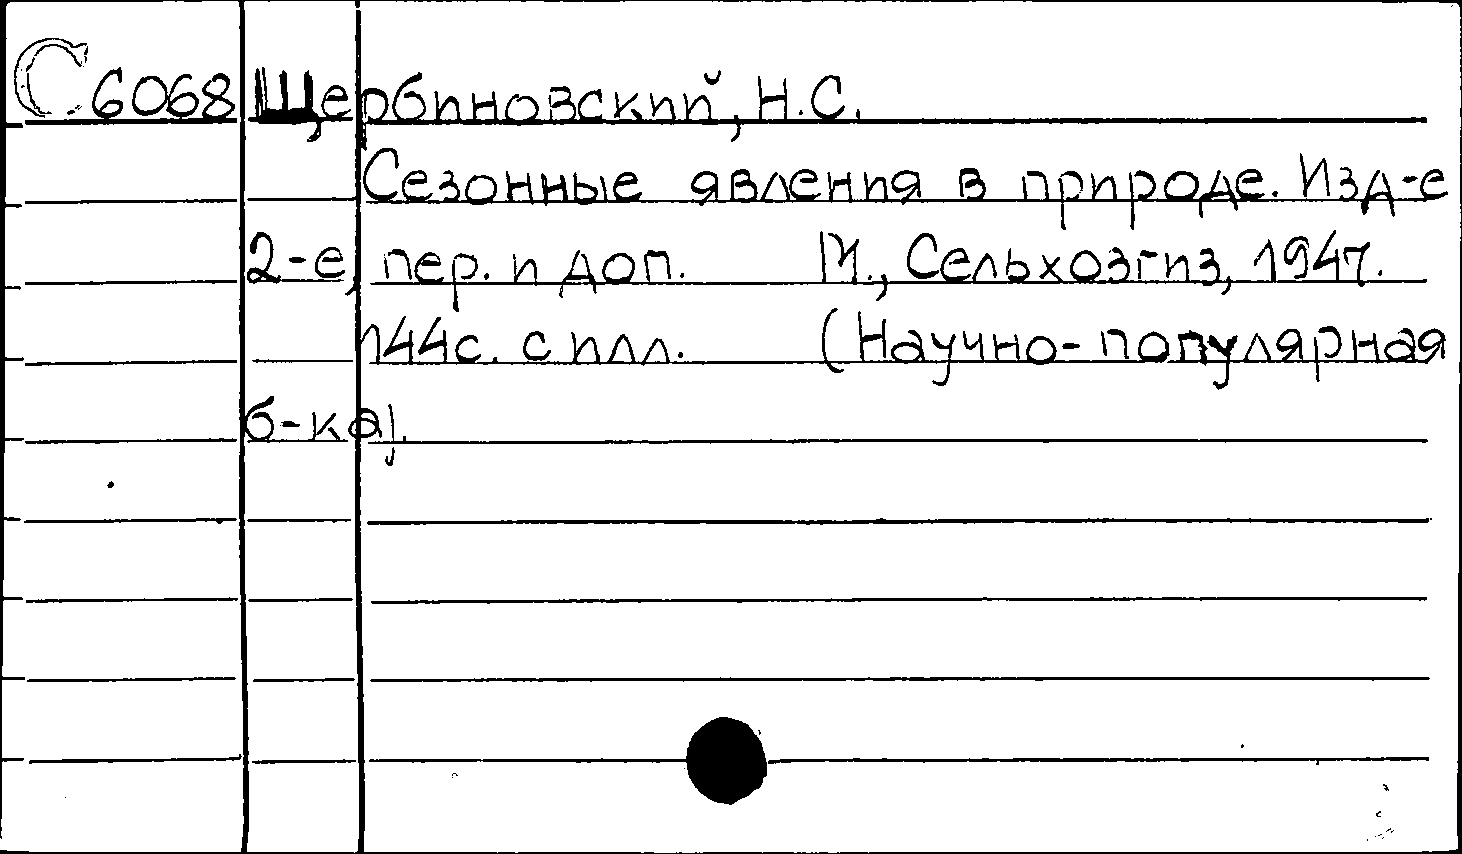 С 6068 Щербиновский, Н.С.
Сезонные явления в природе. Изд-е
2-е, пер. и доп. М., Сельхозгиз, 1947.
144с. с илл. (Научно-популярная
б-ка).